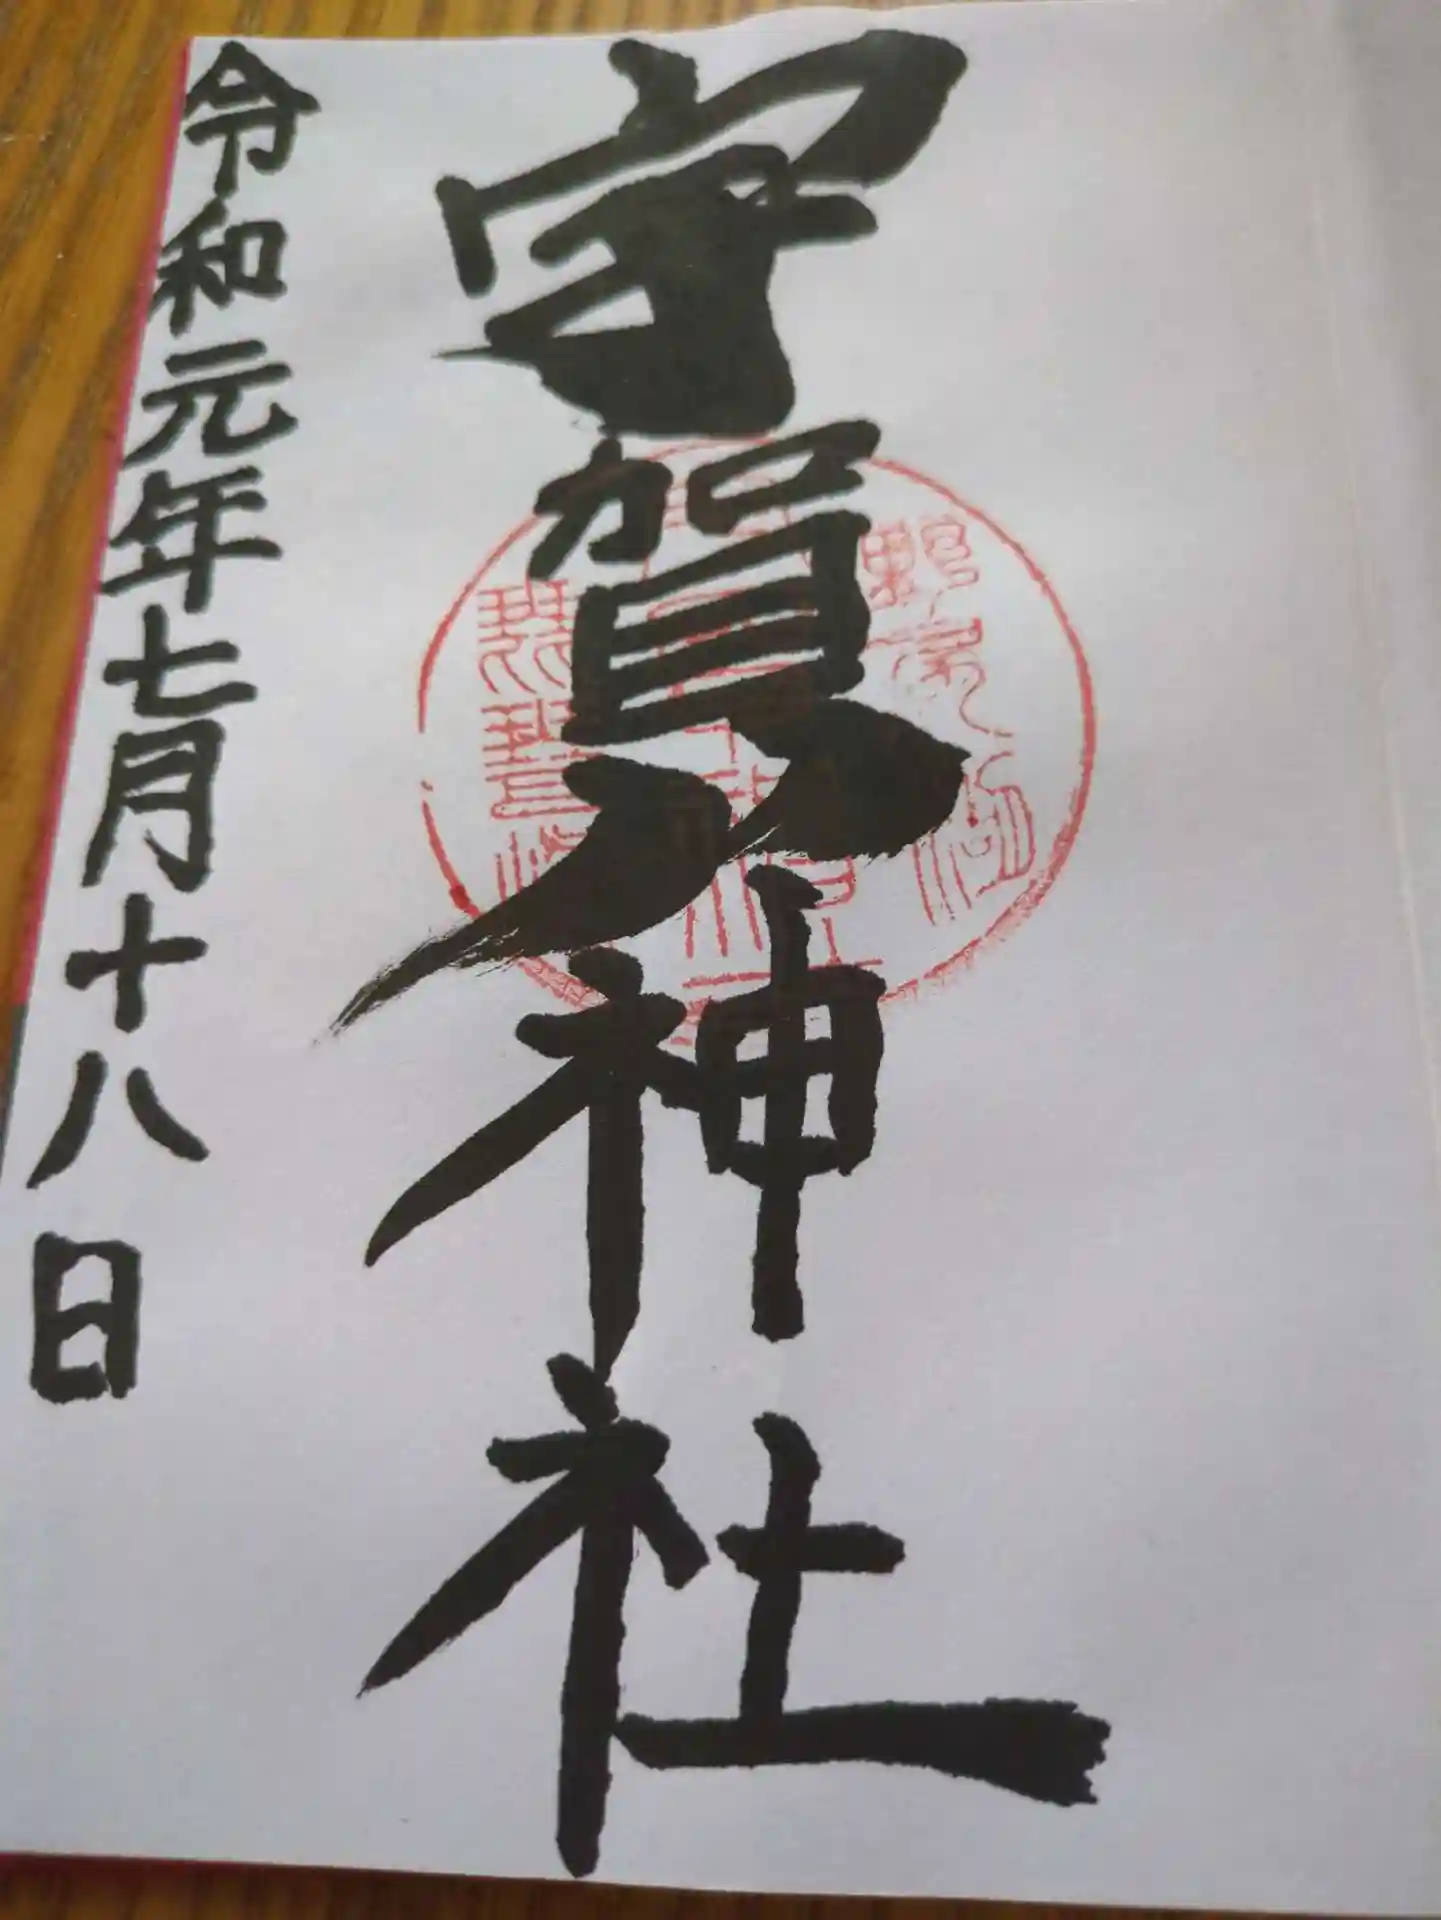 宇賀神社
令和元年七月十八日